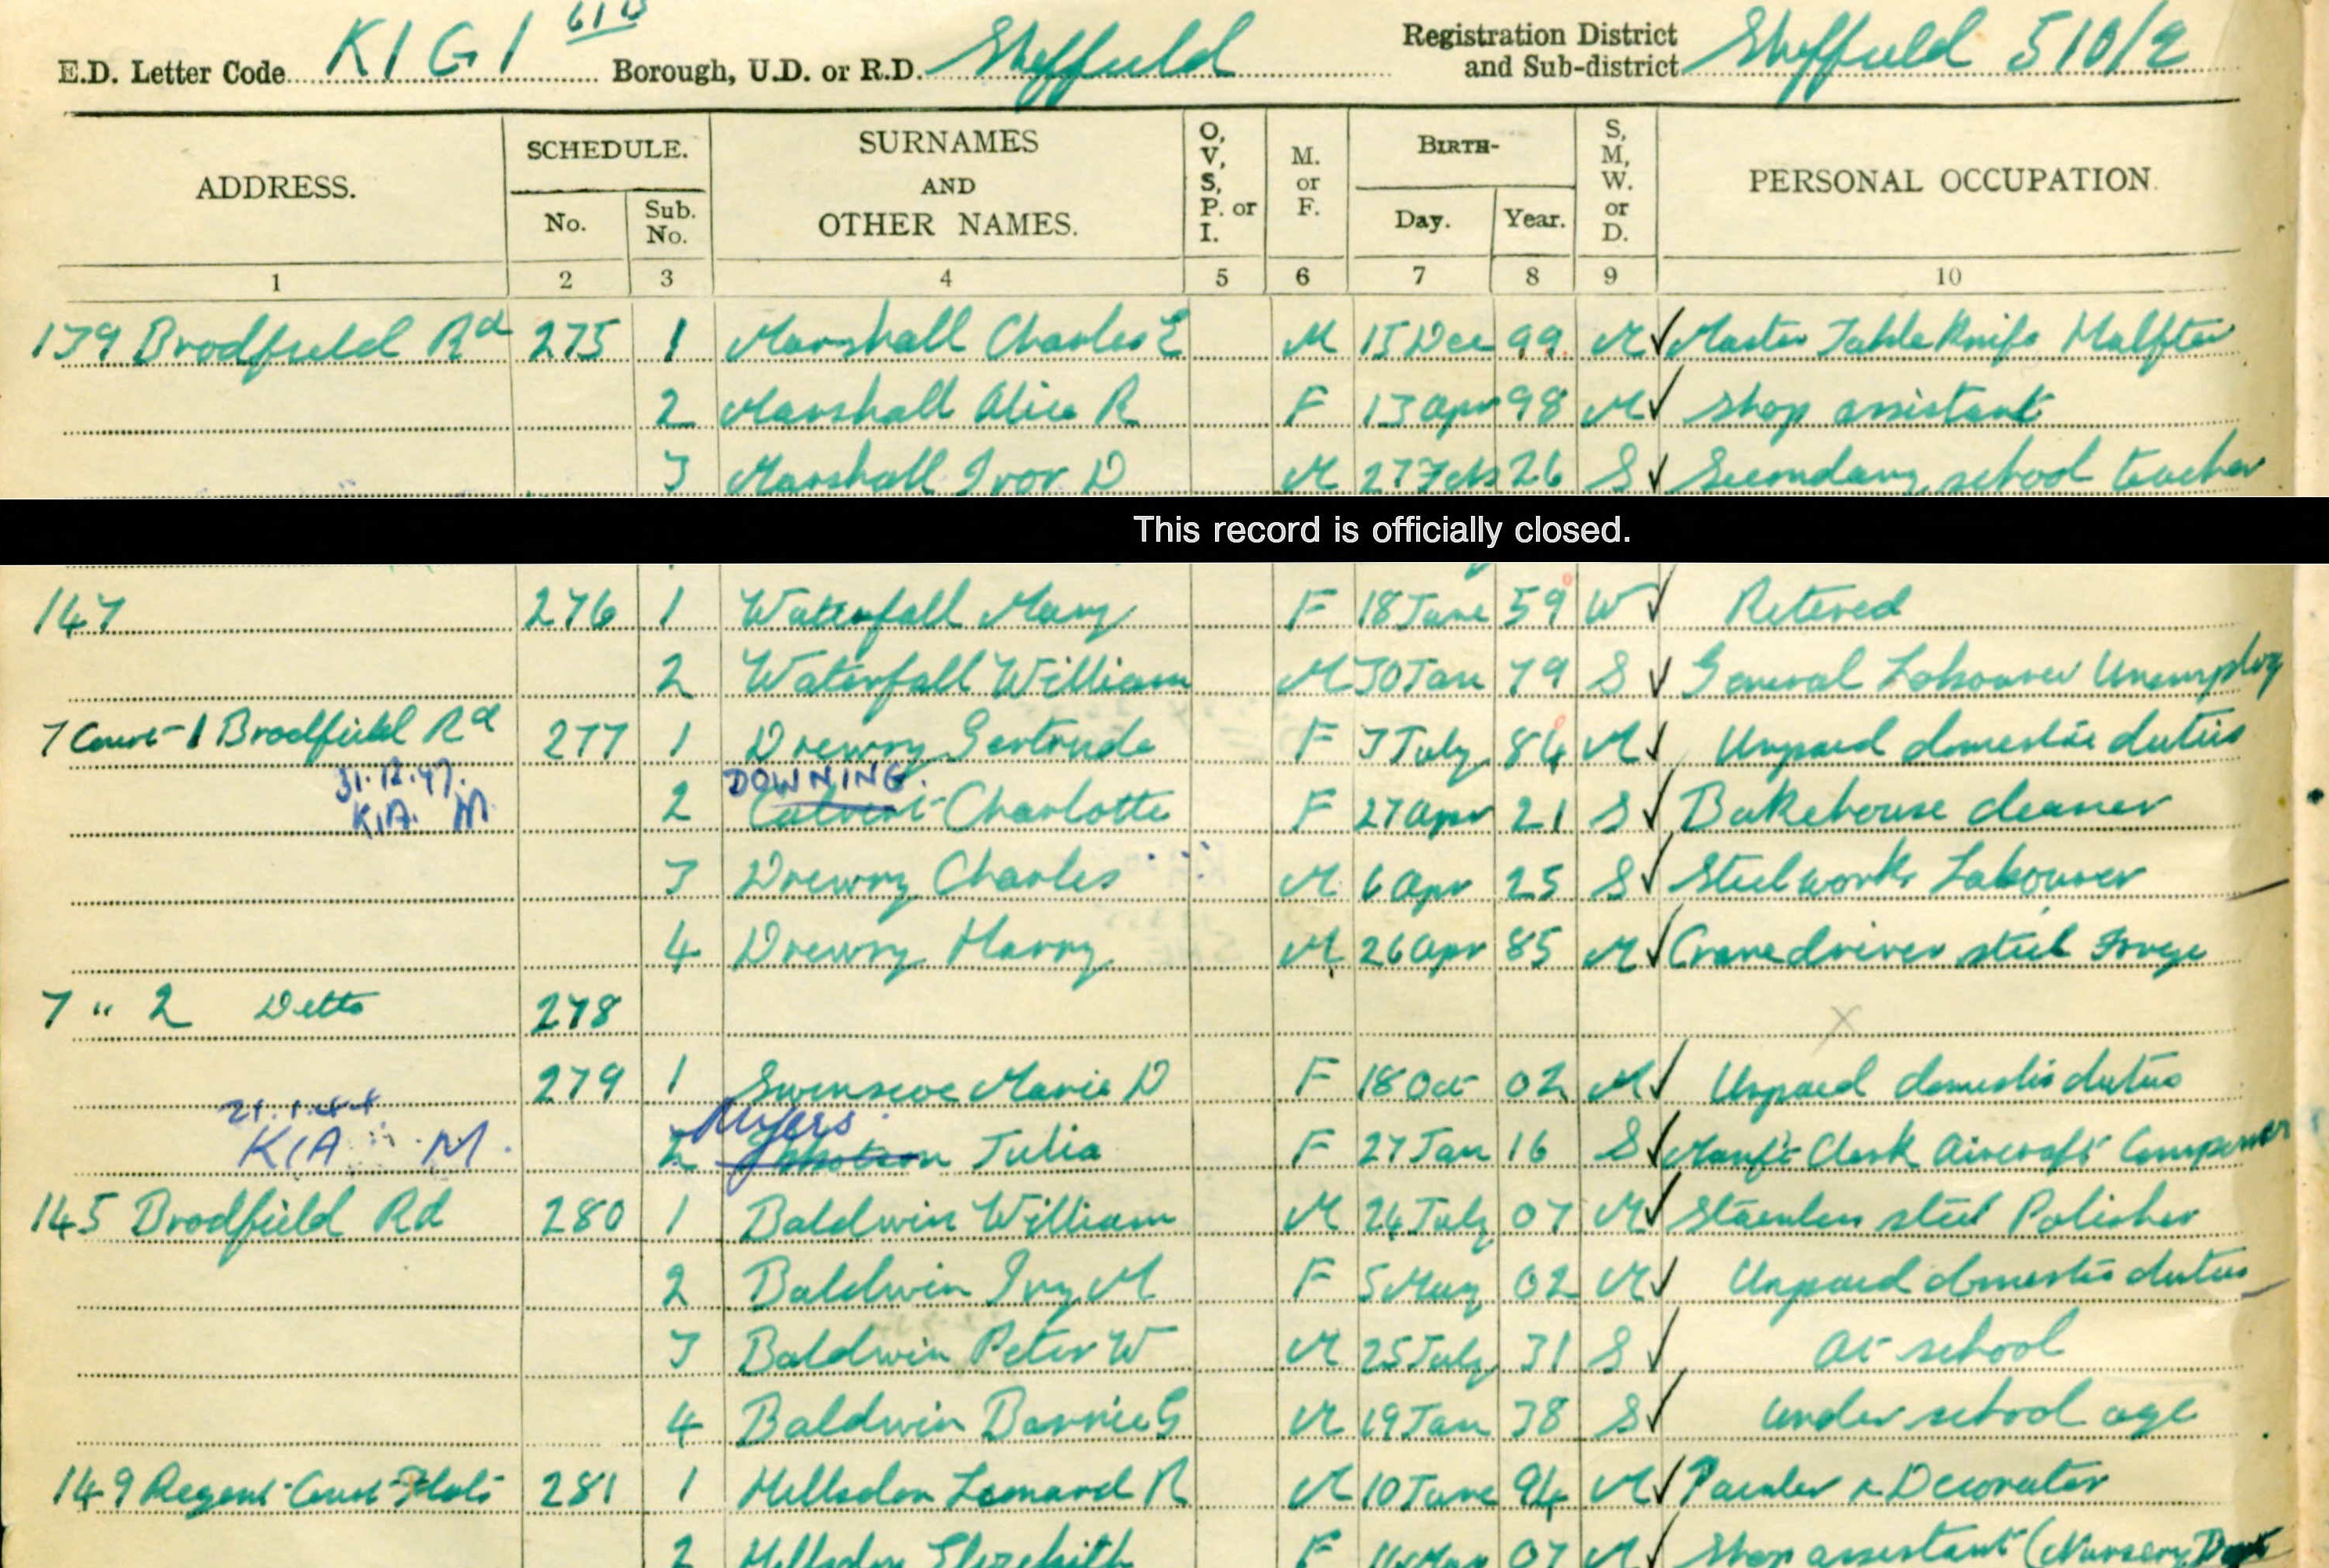 E.D. Letter Code KIGI 61B Borough, U.D. or R.D. Sheffield Registration District and Sub-district Sheffield 510/2
ADDRESS. SCHEDULE. No. Sub. No. SURNAMES AND OTHER NAMES. O, V, S, P. or I. M. or F. BIRTH- Day. Year. S, M, W. or D. PERSONAL OCCUPATION.
1 2 3 4 5 6 7 8 9 10
139 Brodfield Rd 275 1 Marshall Charles E M 15 Dec 99 M Master Table Knife
2 Marshall Alice R F 13 Apr 98 M Shop assistant
3 Marshall Ivor D M 27 Feb 26 S Secondary school teacher
This record is officially closed.
147 276 1 Waterfall Mary F 18 June 59 W Retired
2 Waterfall William M 30 Jan 79 S General Labourer Unemploy
7 Court 1 Brodfield Rd 277 1 Drewry Gertrude F 3 July 84 M Unpaid domestic duties
31.12.47. DOWNING.
K.I.A. M 2 Calvert Charlotte F 27 Apr 21 S Bakehouse cleaner
3 Drewry Charles M 6 Apr 25 S Steelworks Labourer
4 Drewry Harry M 26 Apr 85 M Crane driver steel Forge
7 " 2 Ditto 278
279 1 Swinscoe Marie D F 18 Oct 02 M Unpaid domestic duties
Myers
KIA M. 2 Julia F 27 Jan 16 S Clerk Aircraft
145 Brodfield Rd 280 1 Baldwin William M 24 July 07 M Stainless steel Polisher
2 Baldwin Ivy M F 5 May 02 M Unpaid domestic duties
3 Baldwin Peter W M 25 July 31 S At school
4 Baldwin Barrie G M 19 Jan 38 S Under school age
149 Regent Court Flats 281 1 Hillsdon Leonard R M 10 June 94 M Painter & Decorator
2 Hillsdon Elizabeth F 07 M Shop assistant (Nursery Dept